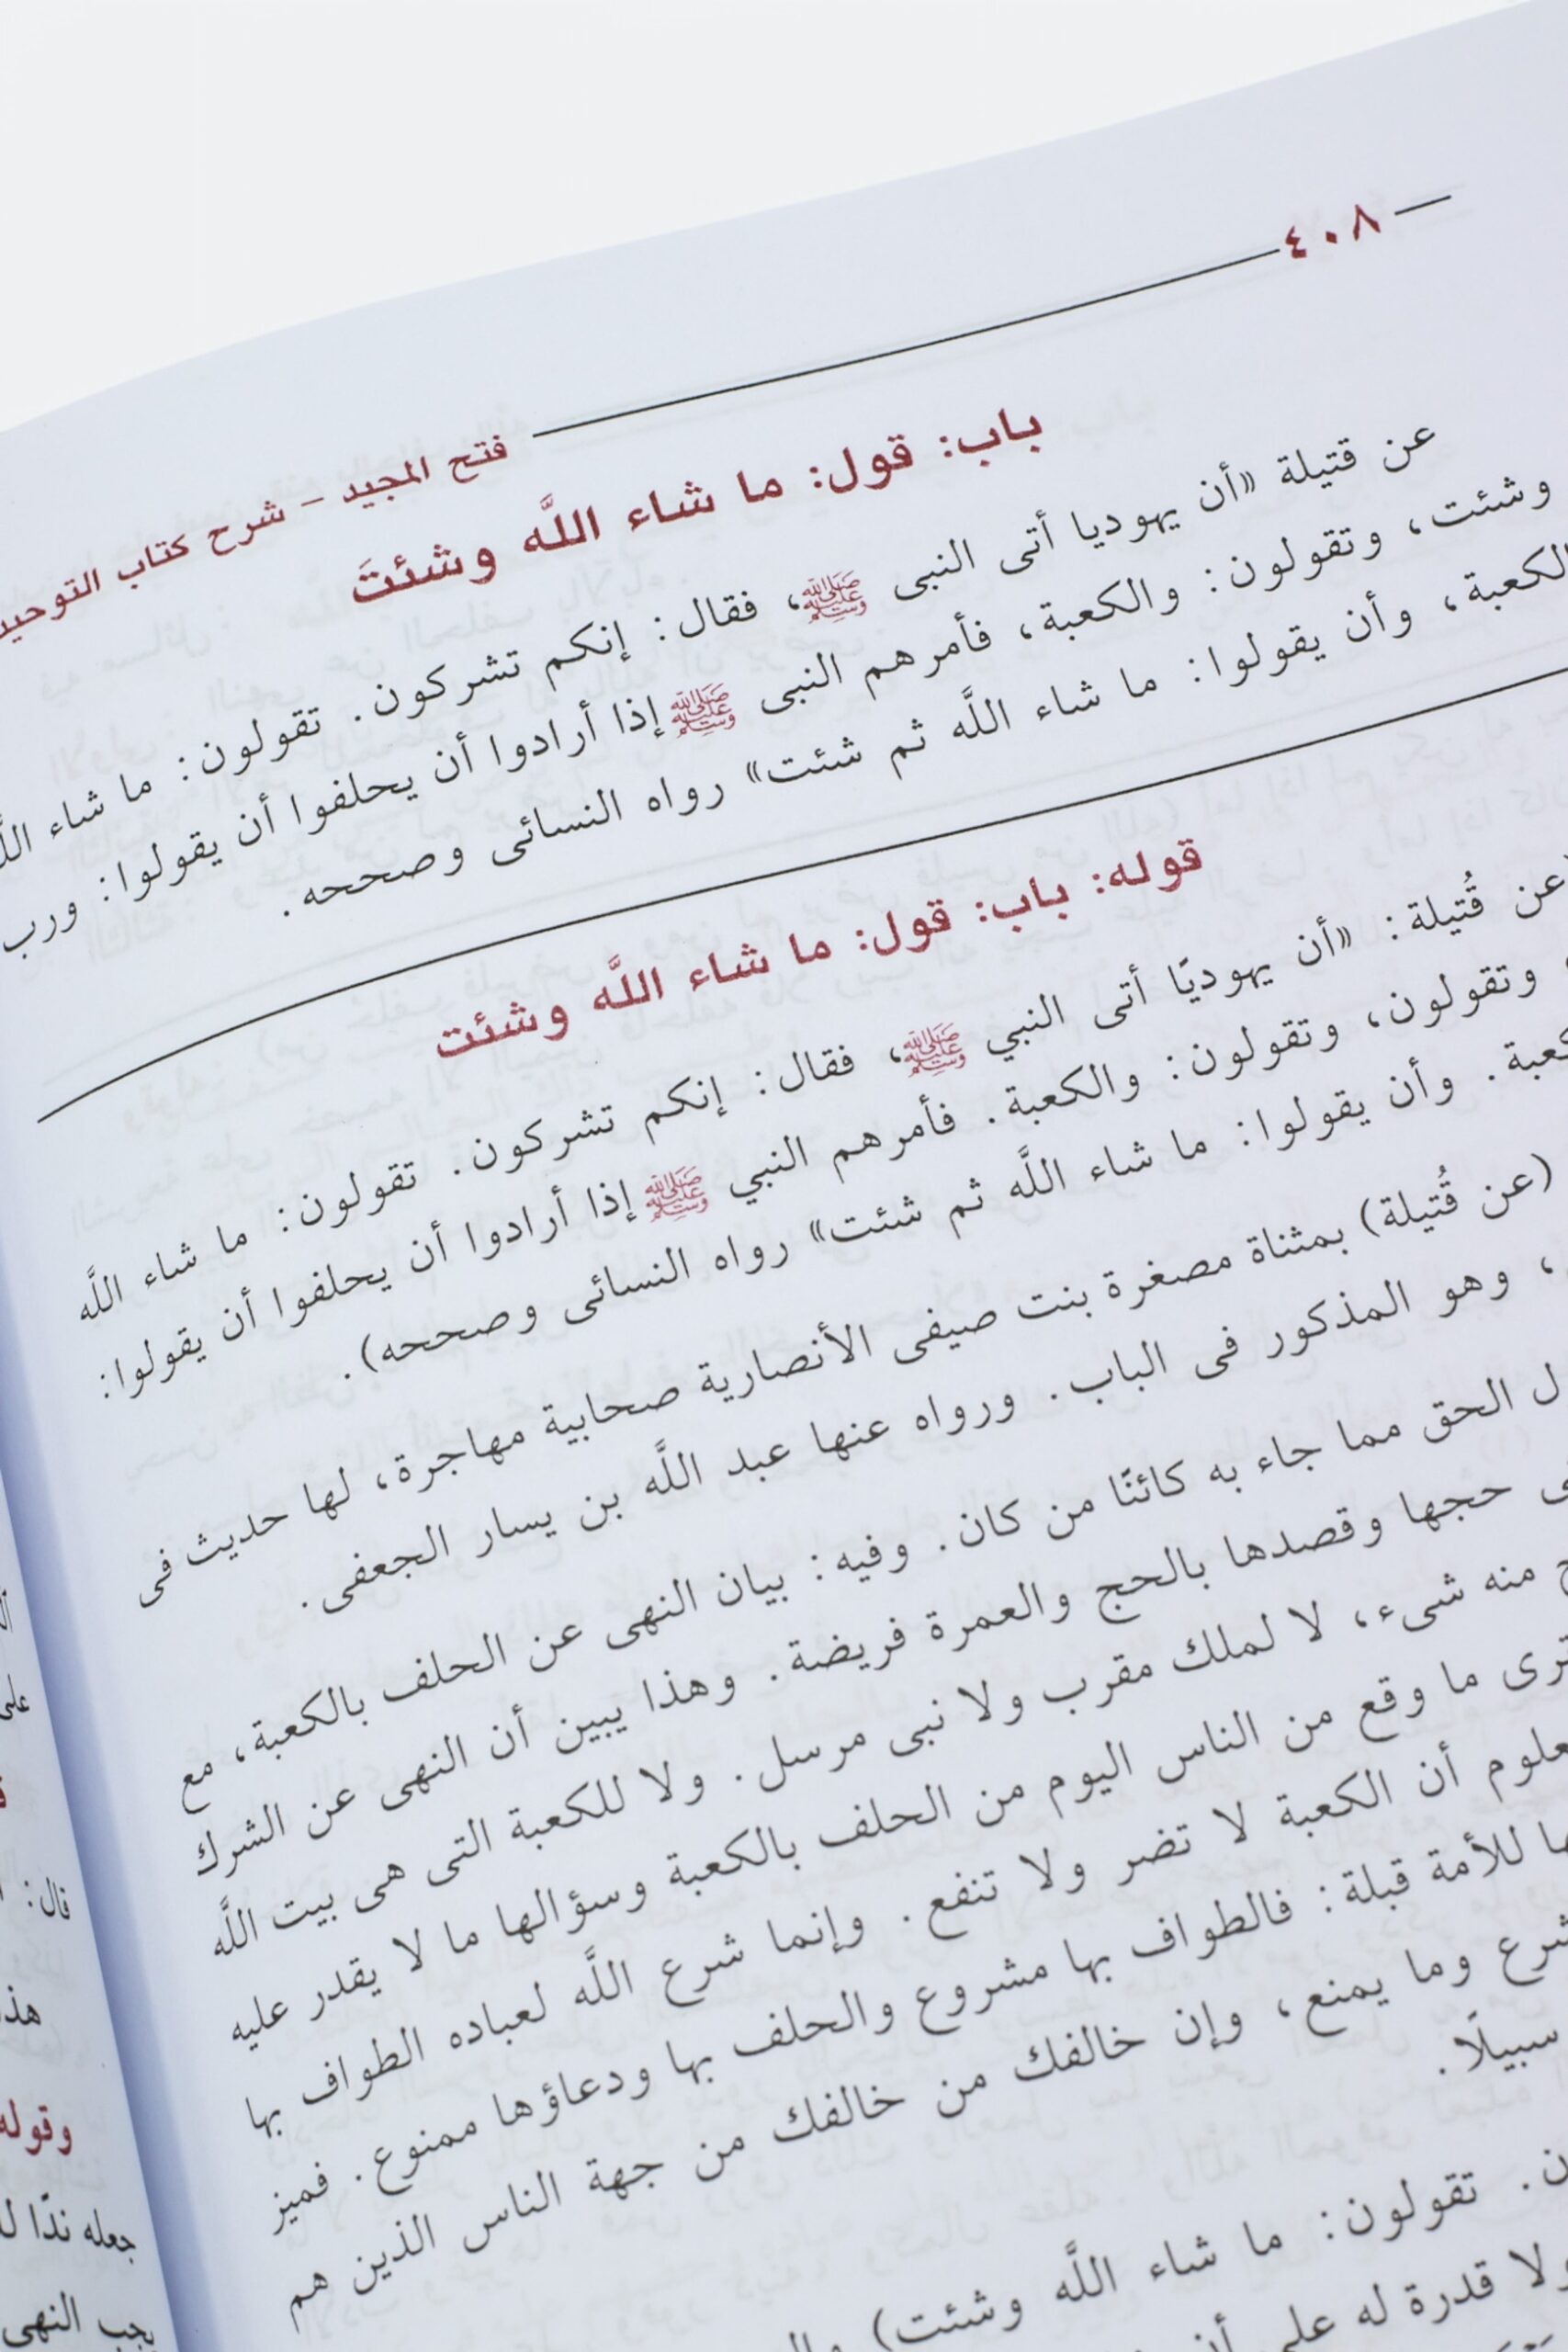 ٤٠٨
فتح المجيد - شرح كتاب التوحيد
باب: قول: ما شاء اللَّه وشئتَ
عن قتيلة «أن يهوديا أتى النبى ﷺ، فقال: إنكم تشركون. تقولون: ما شاء اللَّه
وشئت، وتقولون: والكعبة، فأمرهم النبى ﷺ إذا أرادوا أن يحلفوا أن يقولوا: ورب
الكعبة، وأن يقولوا: ما شاء اللَّه ثم شئت» رواه النسائى وصححه.
قوله: باب: قول: ما شاء اللَّه وشئت
عن قُتيلة: «أن يهوديًا أتى النبي ﷺ، فقال: إنكم تشركون. تقولون: ما شاء اللَّه
وتقولون، وتقولون: والكعبة. فأمرهم النبي ﷺ إذا أرادوا أن يحلفوا أن يقولوا:
وأن يقولوا: ما شاء اللَّه ثم شئت» رواه النسائى وصححه).
(عن قُتيلة) بمثناة مصغرة بنت صيفى الأنصارية صحابية مهاجرة، لها حديث فى
، وهو المذكور فى الباب. ورواه عنها عبد اللَّه بن يسار الجعفى.
الحق مما جاء به كائنًا من كان. وفيه: بيان النهى عن الحلف بالكعبة، مع
حجها وقصدها بالحج والعمرة فريضة. وهذا يبين أن النهى عن الشرك
منه شىء، لا لملك مقرب ولا نبى مرسل. ولا للكعبة التى هى بيت اللَّه
ما وقع من الناس اليوم من الحلف بالكعبة وسؤالها ما لا يقدر عليه
أن الكعبة لا تضر ولا تنفع. وإنما شرع اللَّه لعباده الطواف بها
للأمة قبلة: فالطواف بها مشروع والحلف بها ودعاؤها ممنوع. فميز
وما يمنع، وإن خالفك من خالفك من جهة الناس الذين هم
سبيلًا.
تقولون: ما شاء اللَّه وشئت)
ولا قدرة له على أن
على
قال:
وقوله
جعله ندًا
يجب النهى